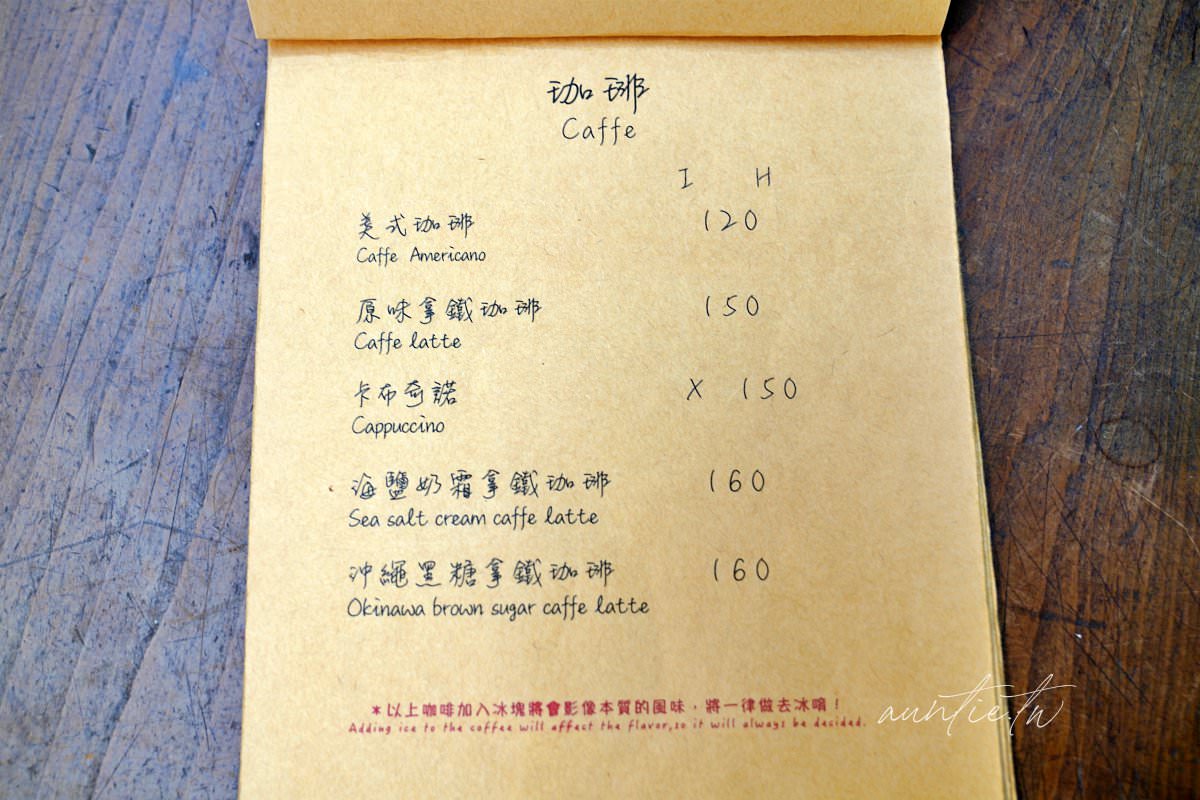 珈琲
Caffe
I H
美式珈琲 120
Caffe Americano
原味拿鐵珈琲 150
Caffe latte
卡布奇諾 X 150
Cappuccino
海鹽奶霜拿鐵珈琲 160
Sea salt cream caffe latte
沖繩黑糖拿鐵珈琲 160
Okinawa brown sugar caffe latte
*以上咖啡加入冰塊將會影像本質的風味，將一律做去冰唷！
Adding ice to the coffee will affect the flavor,so it will always be decided.
auntie.tw